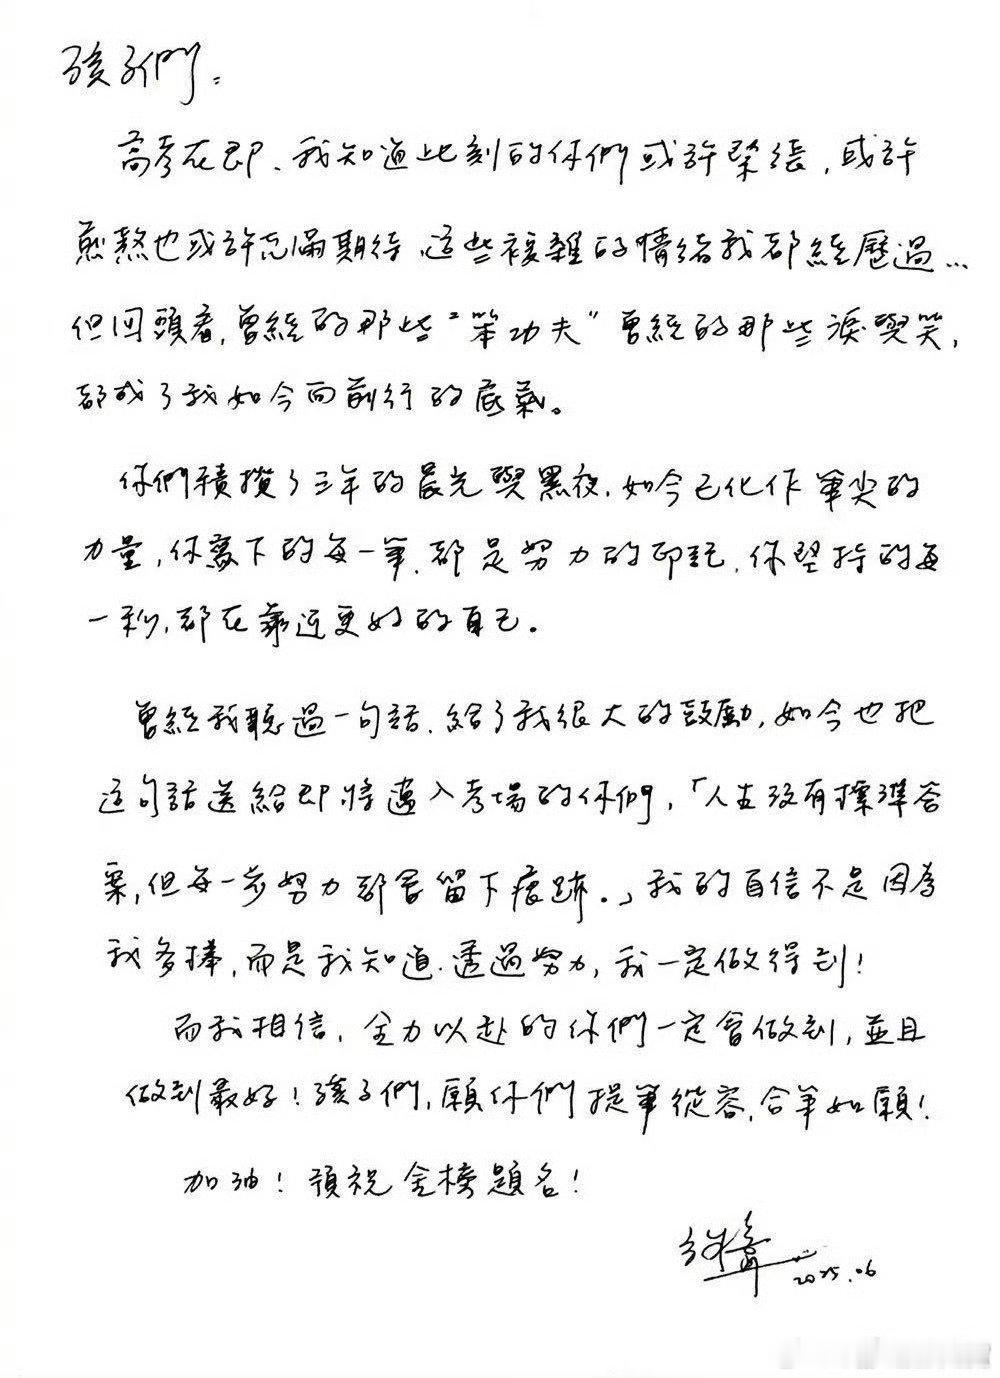 孩子們：
高考在即、我知道此刻的你們或許緊張，或許
煎熬也或許充滿期待、這些複雜的情緒我都經歷過…
但回頭看，曾經的那些“笨功夫”曾經的那些淚與笑，
都成了我如今向前行的底氣。
你們積攢了三年的晨光與黑夜，如今已化作筆尖的
力量，你寫下的每一筆、都是努力的印記、你堅持的每
一秒，都在靠近更好的自己。
曾經我聽過一句話、給了我很大的鼓勵，如今也把
這句話送給即將邁入考場的你們，「人生沒有標準答
案，但每一步努力都會留下痕跡。」我的自信不是因為
我多棒，而是我知道、透過努力，我一定做得到！
而我相信，全力以赴的你們一定會做到，並且
做到最好！孩子們，願你們提筆從容、合筆如願！
加油！預祝金榜題名！
2025.06